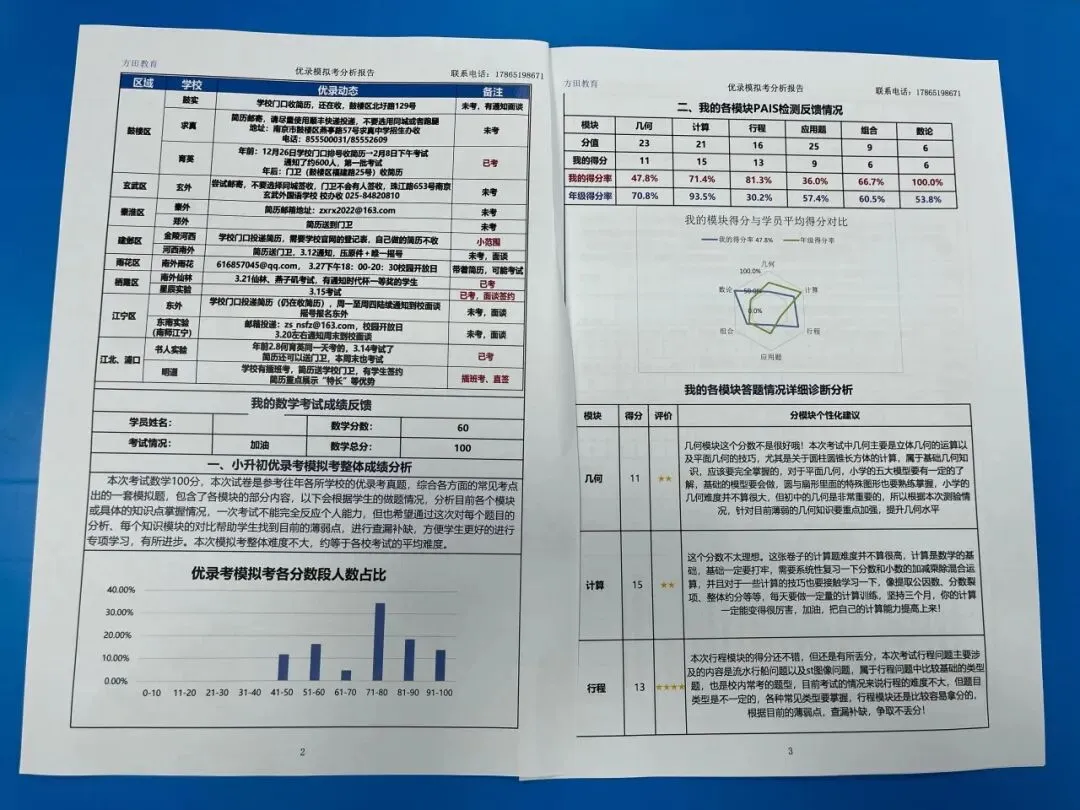 方田教育
优录模拟考分析报告
联系电话：17865198671
区域 学校 优录动态 备注
鼓楼区
鼓实
学校门口收简历，还在收，鼓楼区北圩路129号
未考，有通知面谈
求真
简历邮寄，请尽量使用顺丰快递投递，不要选用同城或者跑腿
地址：南京市鼓楼区燕亭路57号求真中学招生办收
电话：855500031/85552609
未考
育英
年前：12月26日学校门口排号收简历→2月8日下午考试
通知了约600人，第一批考试
年后：门卫（鼓楼区福建路25号）收简历
已考
玄武区 玄外
尝试邮寄，不要选择同城签收，门卫不会有人签收，珠江路653号南京
玄武外国语学校 校办收 025-84820810
未考
秦淮区
秦外 简历邮箱地址：zxrx2022@163.com 未考
郑外 简历送到门卫 未考
建邺区
金陵河西 学校门口投递简历，需要学校官网的登记表，自己做的简历不收 小范围
河西南外 简历送门卫，3.12通知，压原件＋唯一摇号 未考，面谈
雨花区 南外雨花 616857045@qq.com， 3.27下午18：00-20：30校园开放日 带着简历，可能考试
栖霞区
南外仙林 3.21仙林、燕子矶考试，有通知时代杯一等奖的学生 已考
星辰实验 3.15考试 已考，面谈签约
江宁区
东外
学校门口投递简历（仍在收简历），周一至周四陆续通知到校面谈
摇号报名东外
未考，面谈
东南实验
（南师江宁）
邮箱投递：zs_nsfz@163.com，校园开放日
3.20左右通知周末到校面谈
未考，面谈
江北、浦口
书人实验
年前2.8何育英同一天考的，3.14考试了
简历还可以送门卫，本周末也考试
已考
明道
学校有插班考，简历送学校门卫，有学生签约
简历重点展示“特长”等优势
插班考、直签
我的数学考试成绩反馈
学员姓名： 数学分数： 60
考试情况： 加油 数学总分： 100
一、小升初优录考模拟考整体成绩分析
本次考试数学100分，本次试卷是参考往年各所学校的优录考真题，综合各方面的常见考点
出的一套模拟题，包含了各模块的部分内容，以下会根据学生的做题情况，分析目前各个模块
或具体的知识点掌握情况，一次考试不能完全反应个人能力，但也希望通过这次对每个题目的
分析、每个知识模块的对比帮助学生找到目前的薄弱点，进行查漏补缺，方便学生更好的进行
专项学习，有所进步。本次模拟考整体难度不大，约等于各校考试的平均难度。
优录考模拟考各分数段人数占比
40.00%
30.00%
20.00%
10.00%
0.00%
0-10 11-20 21-30 31-40 41-50 51-60 61-70 71-80 81-90 91-100
2
方田教育
优录模拟考分析报告
联系电话：17865198671
二、我的各模块PAIS检测反馈情况
模块 几何 计算 行程 应用题 组合 数论
分值 23 21 16 25 9 6
我的得分 11 15 13 9 6 6
我的得分率 47.8% 71.4% 81.3% 36.0% 66.7% 100.0%
年级得分率 70.8% 93.5% 30.2% 57.4% 60.5% 53.8%
我的模块得分与学员平均得分对比
我的得分率 47.8% 年级得分率
几何
100.0%
数论 50.0% 计算
0.0%
组合 行程
应用题
我的各模块答题情况详细诊断分析
模块 得分 评价 分模块个性化建议
几何 11 ★★
几何模块这个分数不是很好哦！本次考试中几何主要是立体几何的运算以
及平面几何的技巧，尤其是关于圆柱圆锥长方体的计算，属于基础几何知
识，应该要完全掌握的，对于平面几何，小学的五大模型要有一定的了
解，基础的模型要会做，圆与扇形里面的特殊图形也要熟练掌握，小学的
几何难度并不算很大，但初中的几何是非常重要的，所以根据本次测验情
况，针对目前薄弱的几何知识要重点加强，提升几何水平
计算 15 ★★
这个分数不太理想。这张卷子的计算题难度并不算很高，计算是数学的基
础，基础一定要打牢，需要系统性复习一下分数和小数的加减乘除混合运
算，并且对于一些计算的技巧也要接触学习一下，像提取公因数、分数裂
项、整体约分等等，每天要做一定量的计算训练，坚持三个月，你的计算
一定能变得很厉害，加油，把自己的计算能力提高上来！
行程 13 ★★★★
本次行程模块的得分还不错，但还是有所丢分，本次考试行程问题主要涉
及的内容是流水行船问题以及st图像问题，属于行程问题中比较基础的类型
题，也是校内常考的题型，目前考试的情况来说行程的难度不大，但题目
类型是不一定的，各种常见类型要掌握，行程模块还是比较容易拿分的，
根据目前的薄弱点，查漏补缺，争取不丢分！
3